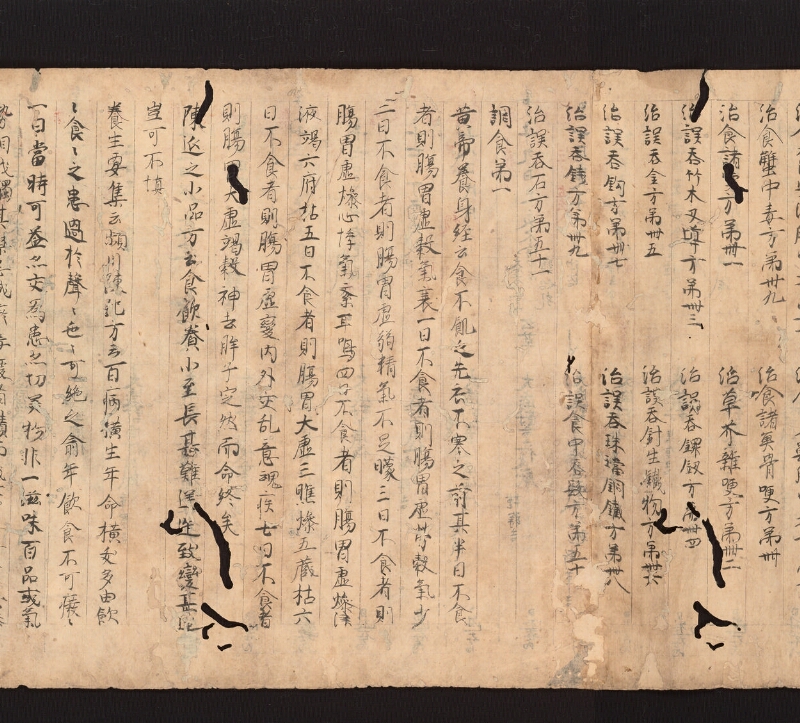 治食蟹中毒方第卅九 治飡諸魚骨哽方第卌
治食諸 方第卌一 治草芥雜哽方第卌二
治誤吞竹木叉導方第卌三 治誤吞鐶釵方第卌四
治誤吞金方第卌五 治誤吞針生鐵物方第卌六
治誤吞鈎方第卌七 治誤吞珠璫銅鐵方第卌八
治誤吞錢方第卌九 治誤食中吞髮方第五十
治誤吞石方第五十一
調食第一
黄帝養身經云食不飢之先衣不寒之前其半日不食
者則腸胃虚穀氣衰一日不食者則腸胃虚 穀氣少
二日不食者則腸胃虚弱精氣不足矇三日不食者則
腸胃虚燥心悸氣紊耳鳴四日不食者則腸胃虚燥津
液竭六府枯五日不食者則腸胃大虚三瞧燥五藏枯六
日不食者則腸胃虚變内外交乱意魂疾七日不食者
則腸胃大虚竭穀神去眸子定然而命終矣
陳延之小品方云食飲養小至長甚難 先致變甚
豈可不慎
養生要集云頴川陳紀方云百病橫生年命橫夭多由飲
〻食〻之患過於聲〻也〻可絶之踰年飲食不可廢〻
一日當時可益亦交為患亦切 物非一滋味百品或氣